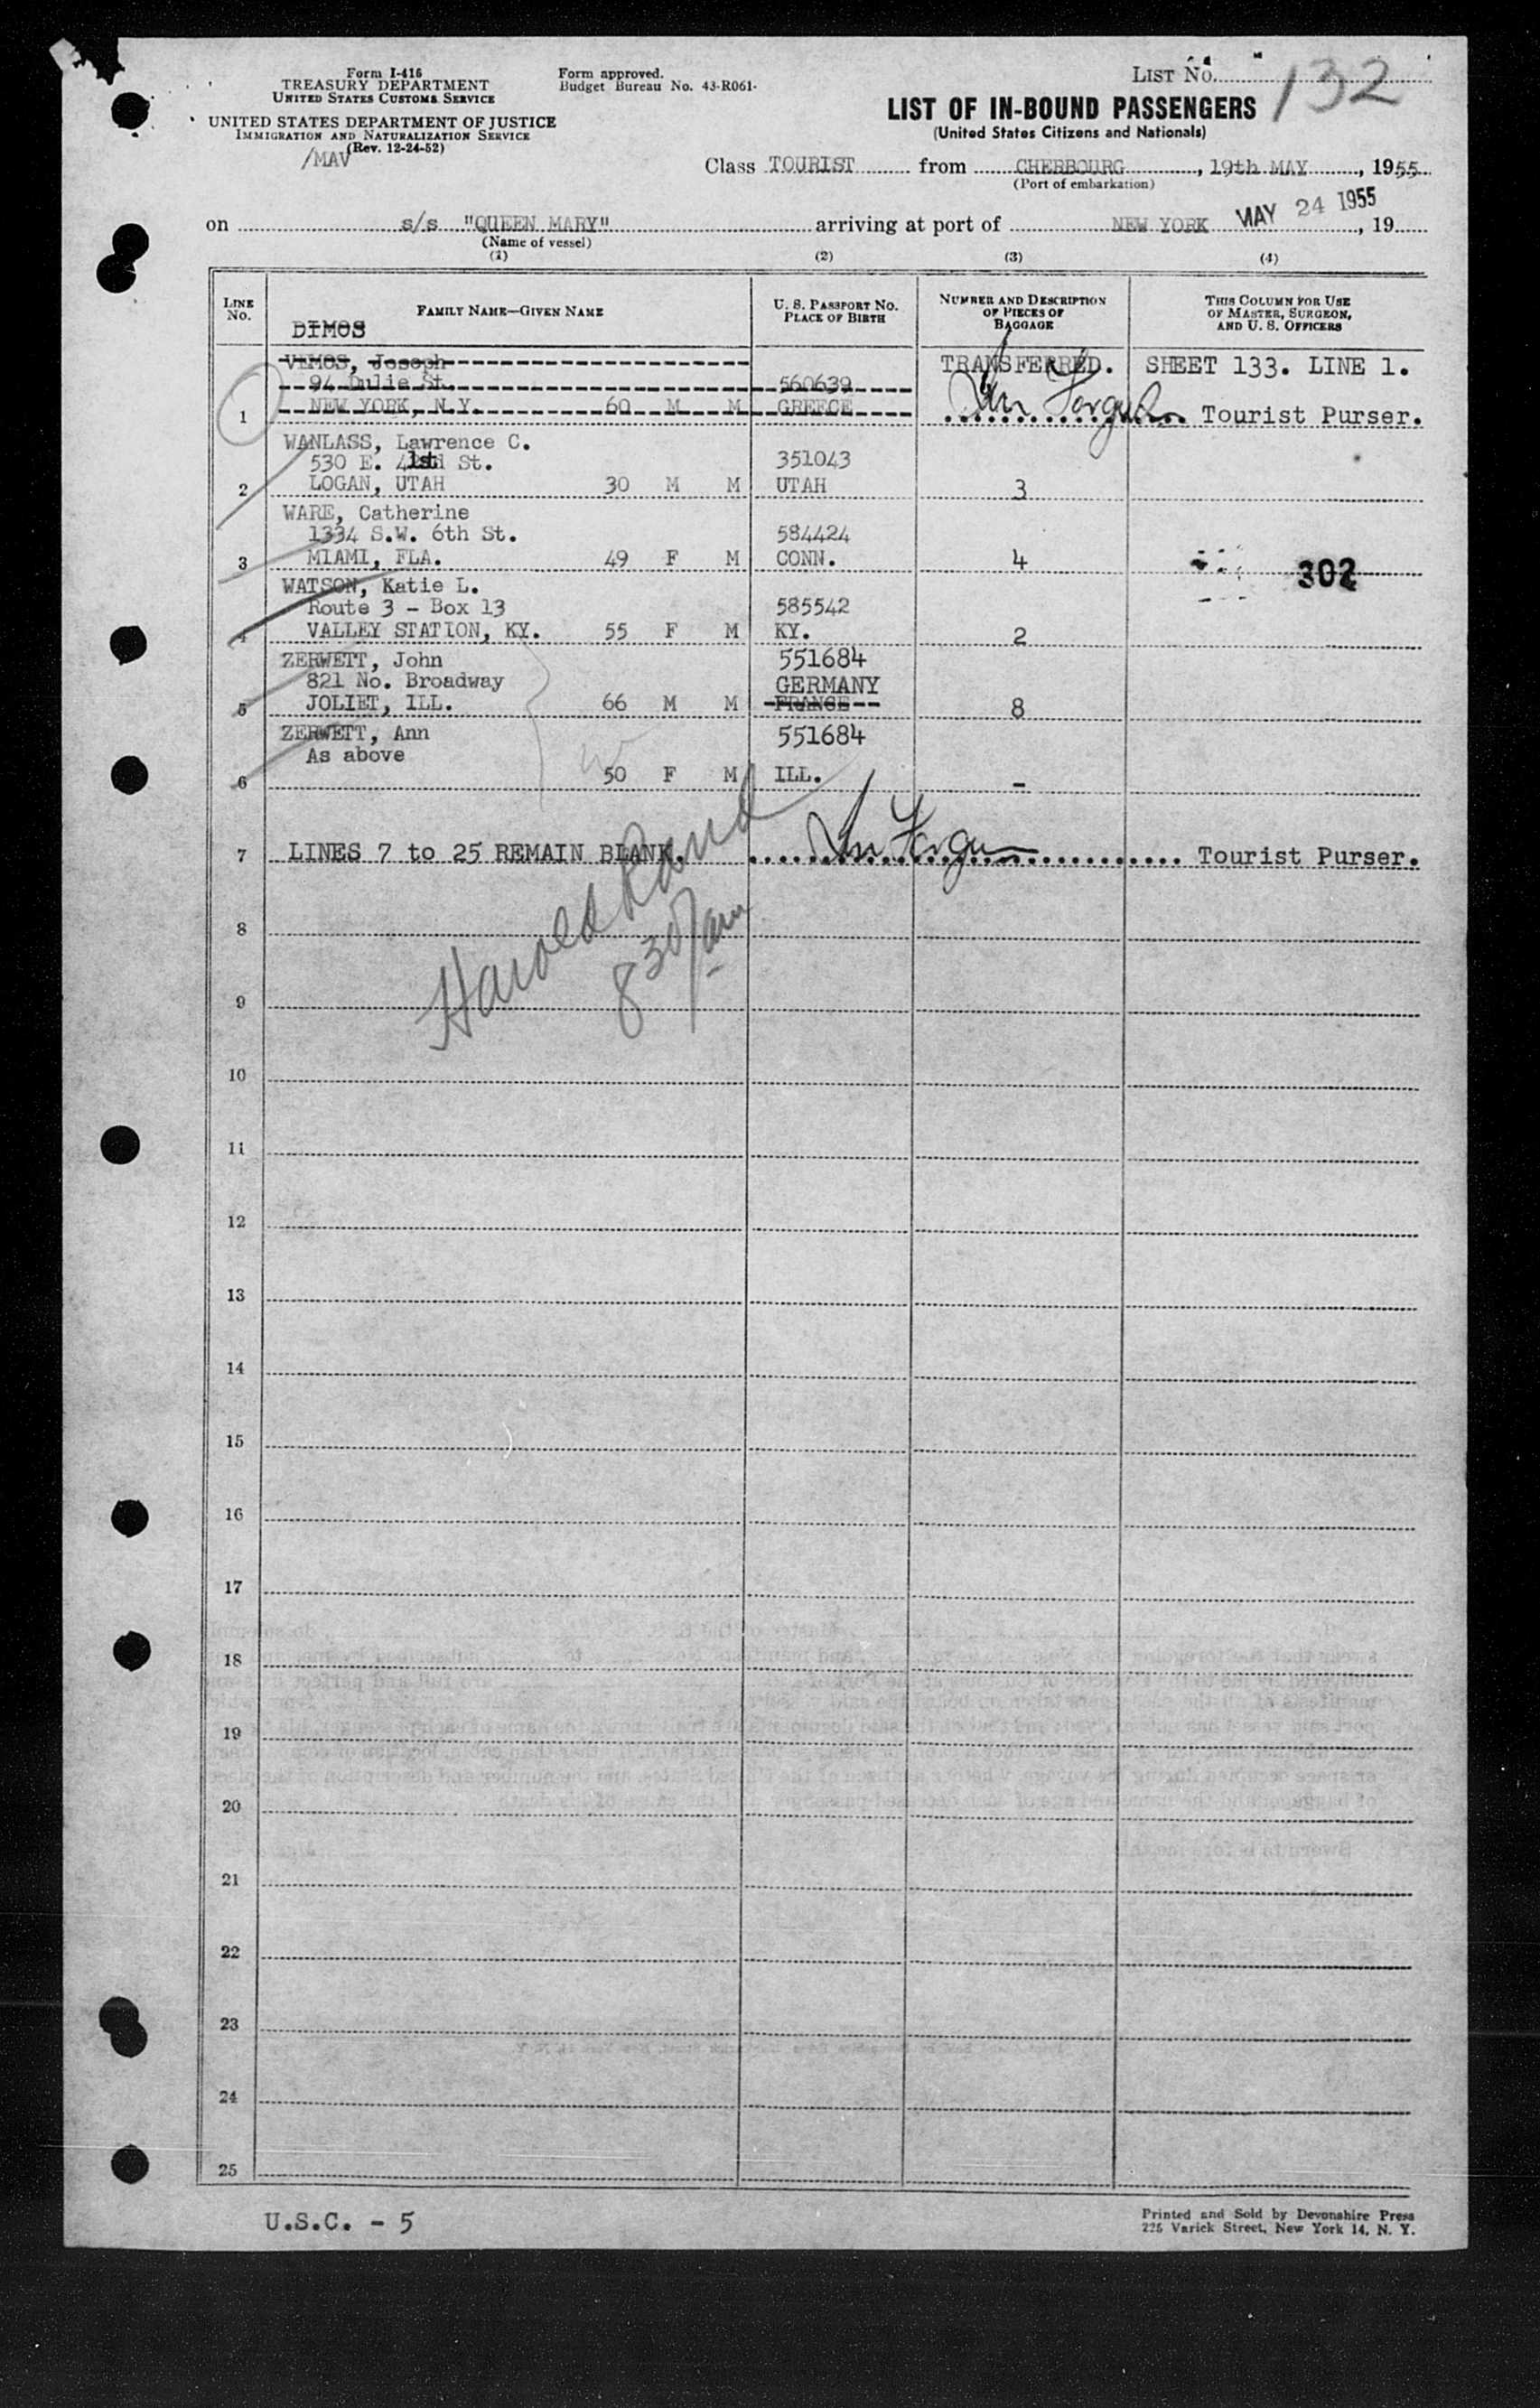 Form I-416
TREASURY DEPARTMENT
UNITED STATES CUSTOMS SERVICE
UNITED STATES DEPARTMENT OF JUSTICE
IMMIGRATION AND NATURALIZATION SERVICE
(Rev. 12-24-52)
/MAV
Form approved.
Budget Bureau No. 43-R061-
LIST No. 132
LIST OF IN-BOUND PASSENGERS
(United States Citizens and Nationals)
Class TOURIST from CHERBOURG, 19th MAY, 1955
(Port of embarkation)
on s/s "QUEEN MARY" arriving at port of NEW YORK MAY 24 1955, 19
(Name of vessel)
(1) (2) (3) (4)
LINE No. FAMILY NAME—GIVEN NAME U. S. PASSPORT No. PLACE OF BIRTH NUMBER AND DESCRIPTION OF PIECES OF BAGGAGE THIS COLUMN FOR USE OF MASTER, SURGEON, AND U. S. OFFICERS
DIMOS
VEMOS, Joseph TRANSFERRED. SHEET 133. LINE 1.
94 Dulie St. 560639
1 NEW YORK, N.Y. 60 M M GREECE Tourist Purser.
WANLASS, Lawrence C.
530 E. 1st St. 351043
2 LOGAN, UTAH 30 M M UTAH 3
WARE, Catherine
1334 S.W. 6th St. 584424
3 MIAMI, FLA. 49 F M CONN. 4 302
WATSON, Katie L.
Route 3 - Box 13 585542
4 VALLEY STATION, KY. 55 F M KY. 2
ZERWETT, John 551684
821 No. Broadway GERMANY
5 JOLIET, ILL. 66 M M FRANCE 8
ZERWETT, Ann 551684
As above
6 50 F M ILL. -
7 LINES 7 to 25 REMAIN BLANK. Tourist Purser.
Harold Rand
8 30/am
8
9
10
11
12
13
14
15
16
17
18
19
20
21
22
23
24
25
U.S.C. - 5
Printed and Sold by Devonshire Press
225 Varick Street, New York 14, N. Y.